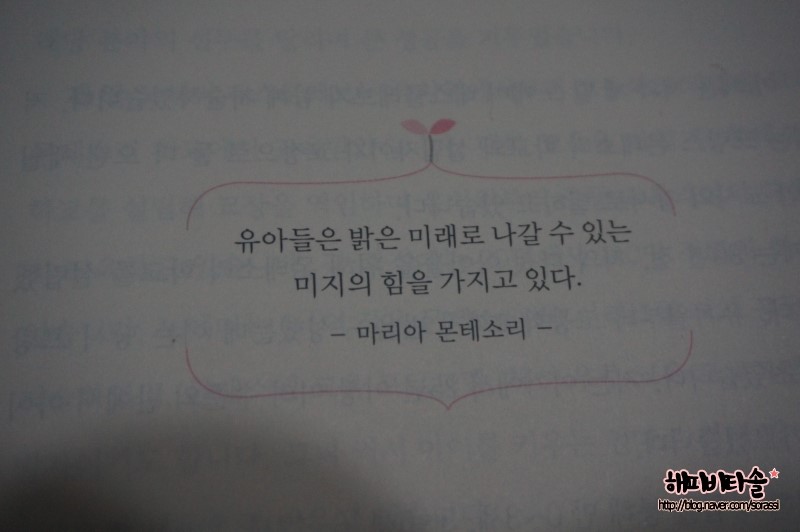 유아들은 밝은 미래로 나갈 수 있는
미지의 힘을 가지고 있다.
– 마리아 몬테소리 –
해피비타솔
http://blog.naver.com/sorassl